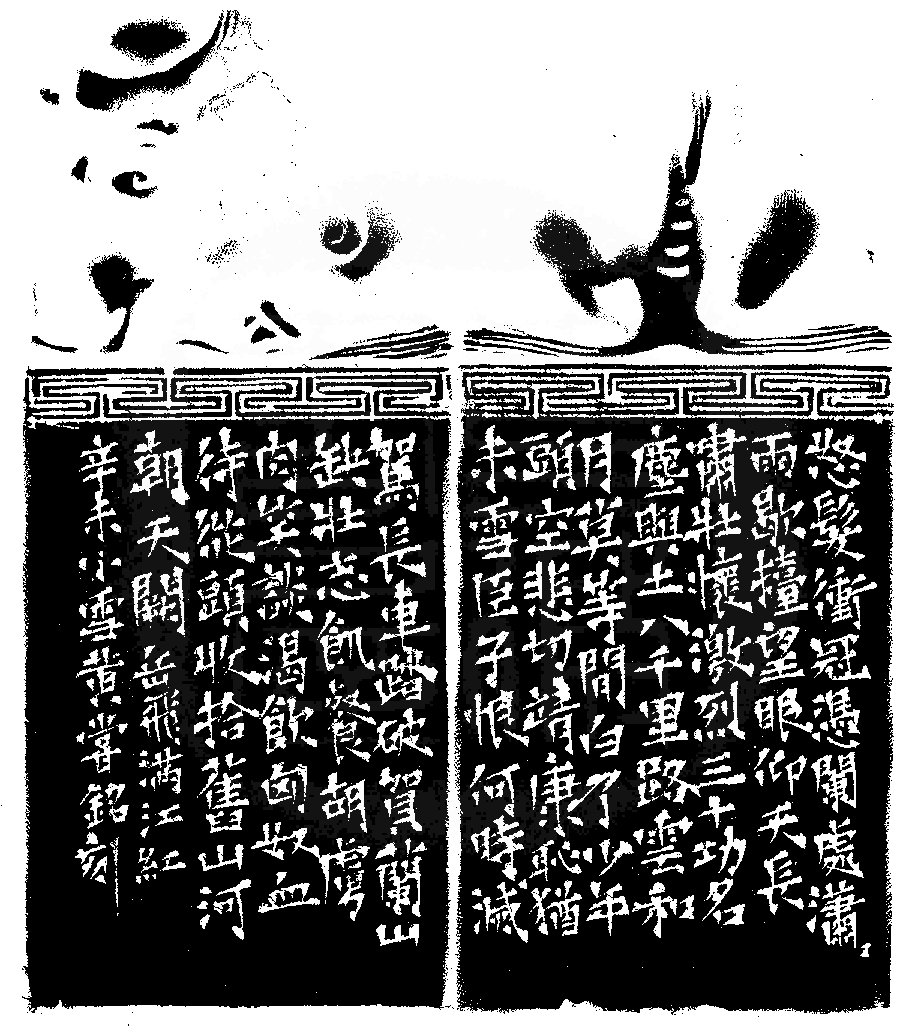 怒髮衝冠憑闌處瀟〻
雨歇擡望眼仰天長
嘯壯懷激烈三十功名
塵與土八千里路雲和
月莫等間白了少年
頭空悲切靖康恥猶
未雪臣子恨何時滅
駕長車踏破賀蘭山
缺壯志飢餐胡虜
肉笑談渴飲匈奴血
待從頭收拾舊山河
朝天闕岳飛滿江紅
辛未小雪掌銘刻